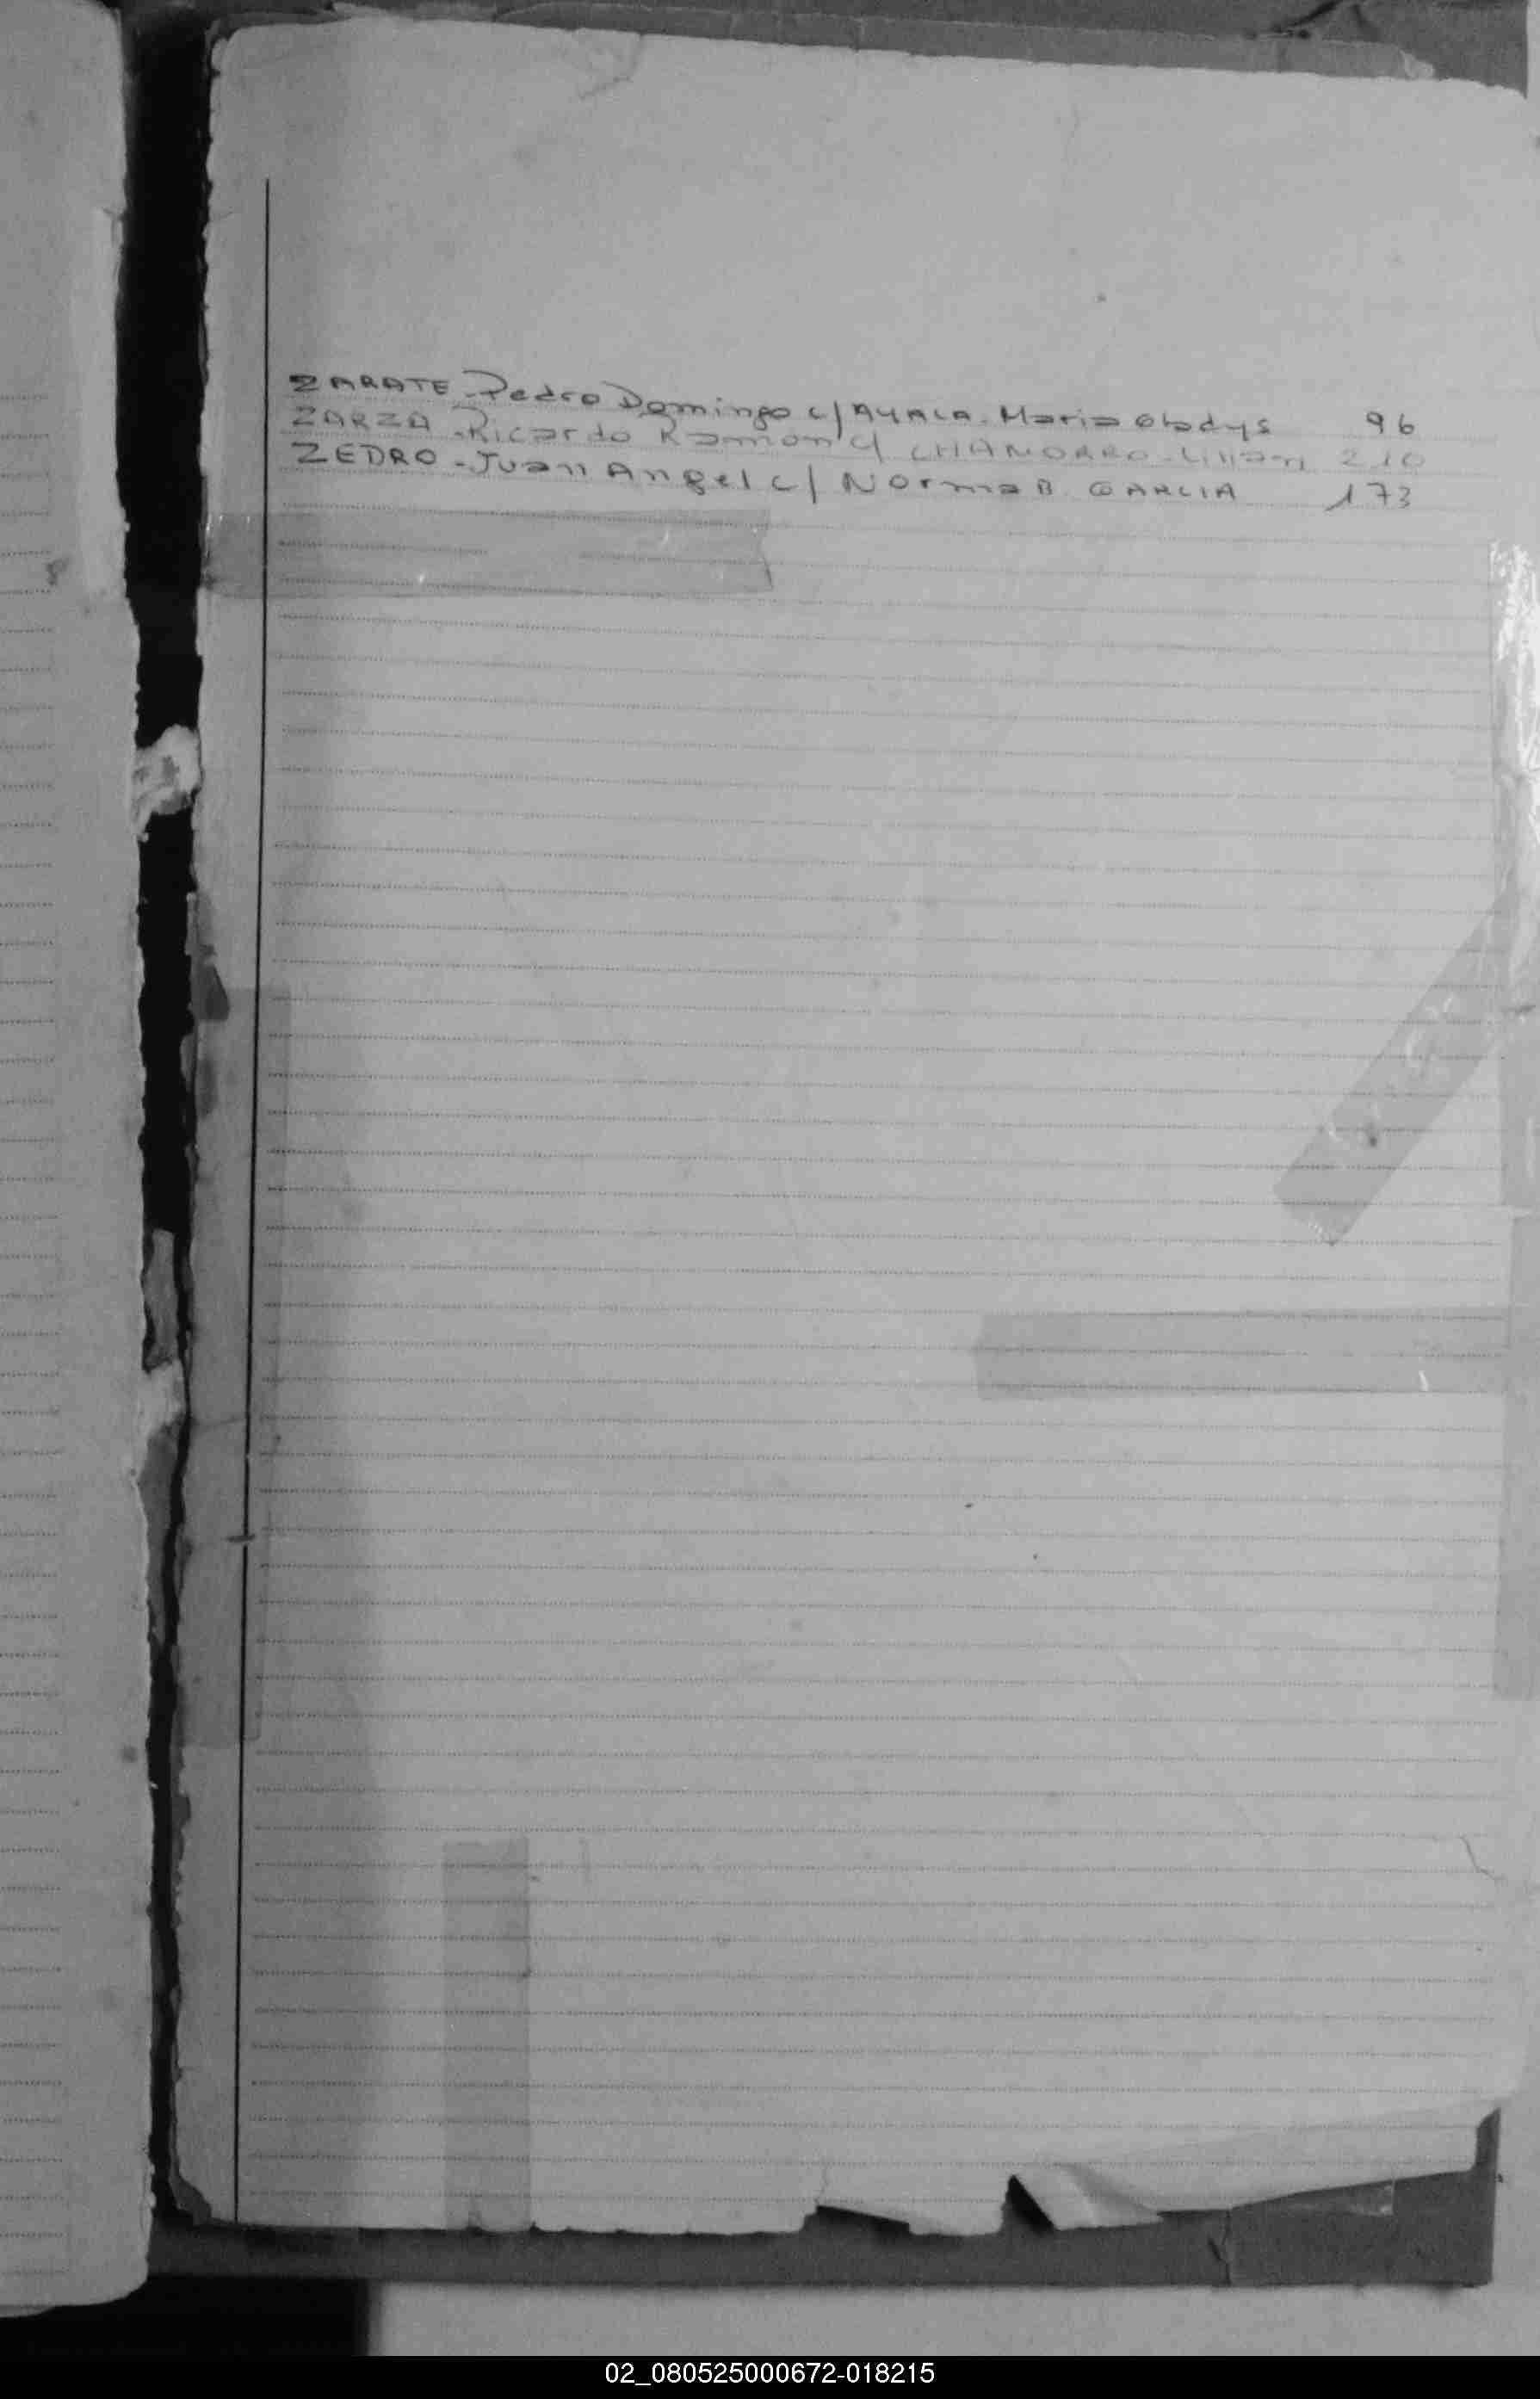 ZARATE - Pedro Domingo c/ AYALA. Maria Gladys 96
ZARZA - Ricardo Ramon c/ CHAMORRO - Lilian 210
ZEDRO - Juan Angel c/ Norma B. GARCIA 173
02_080525000672-018215